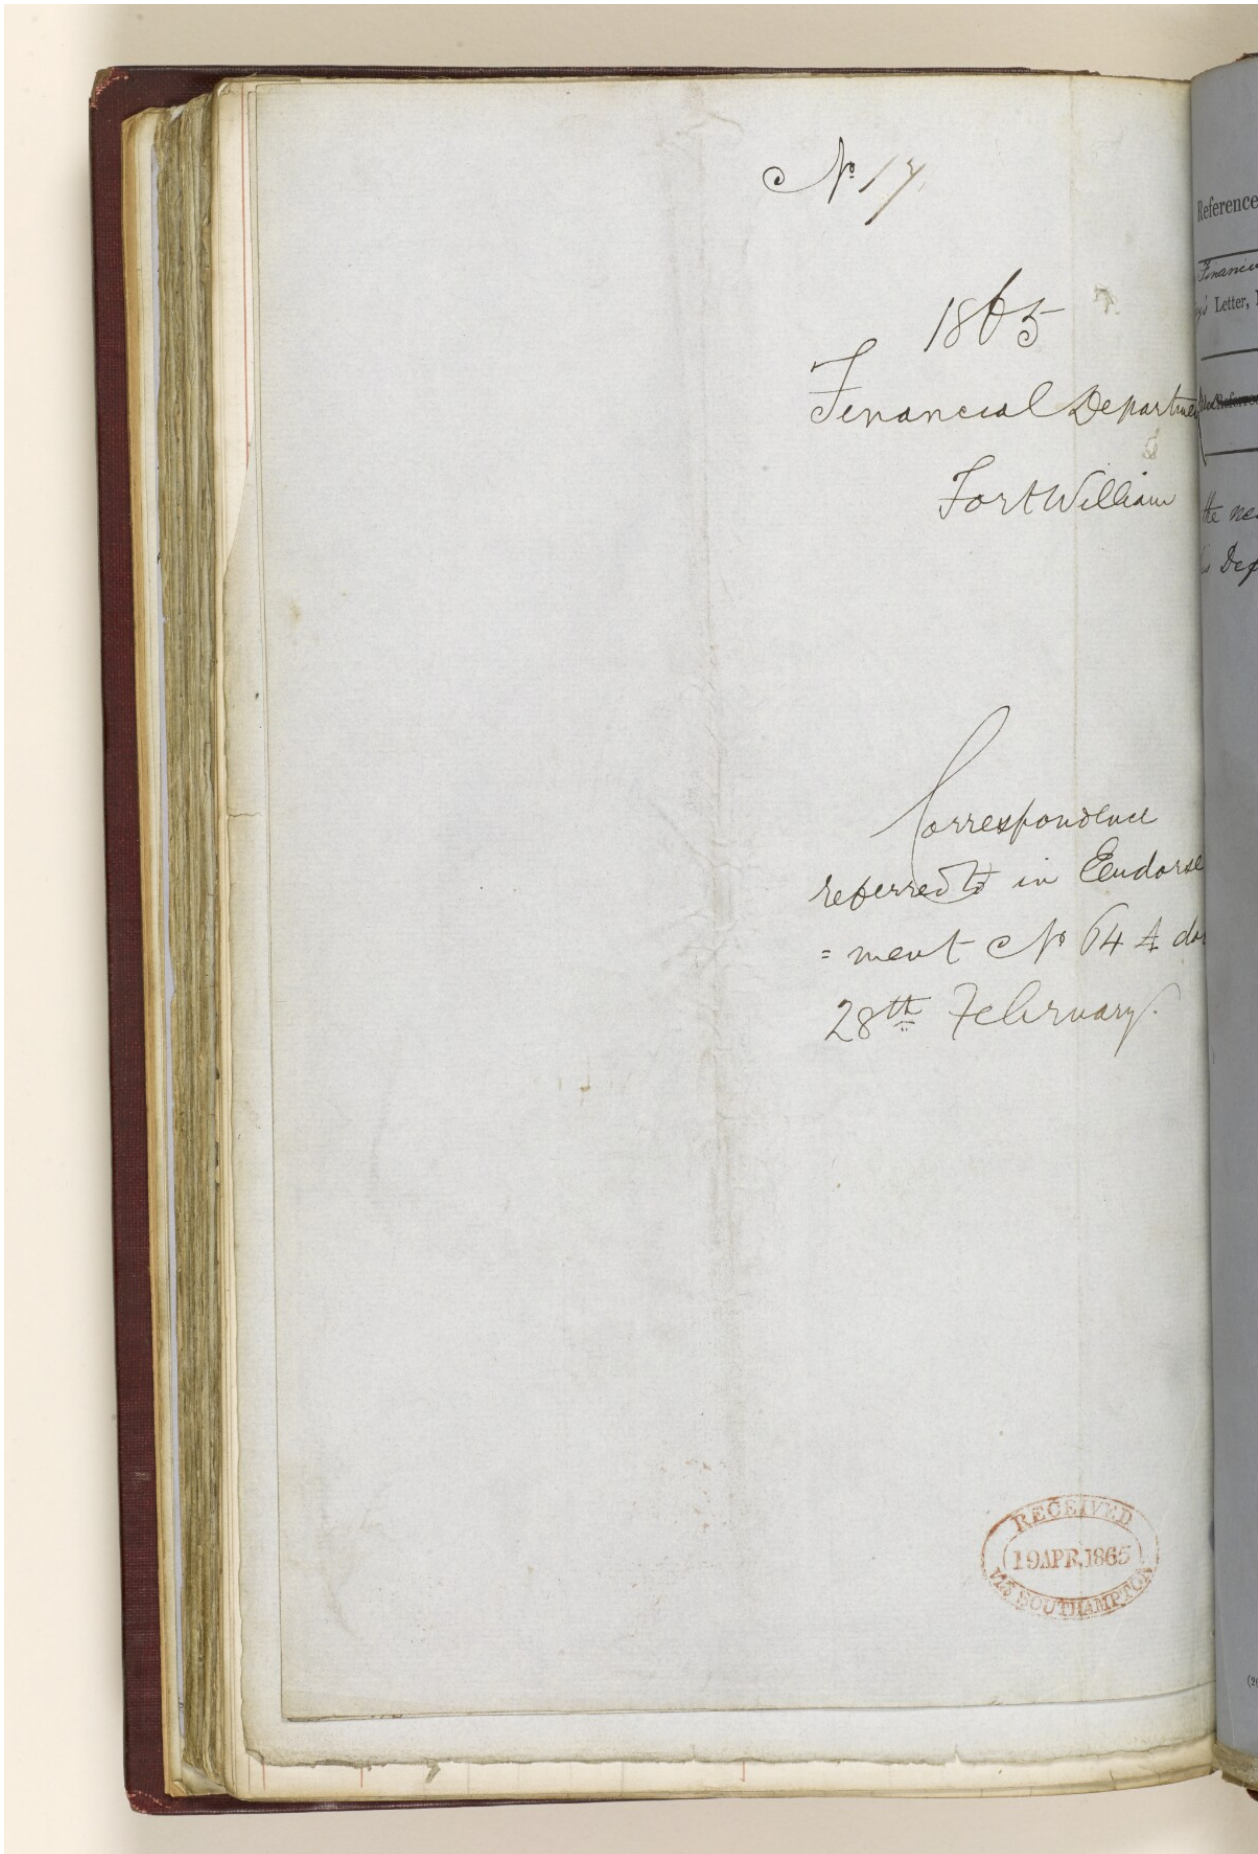 No 17
1865
Financial Departmen
Fort William
Correspondence
referred to in Eendorse
=ment No 64 A da
28th February.
RECEIVED
19 APR. 1865
VIA SOUTHAMPTON
Reference
Financi
Letter,
the ne
Dep